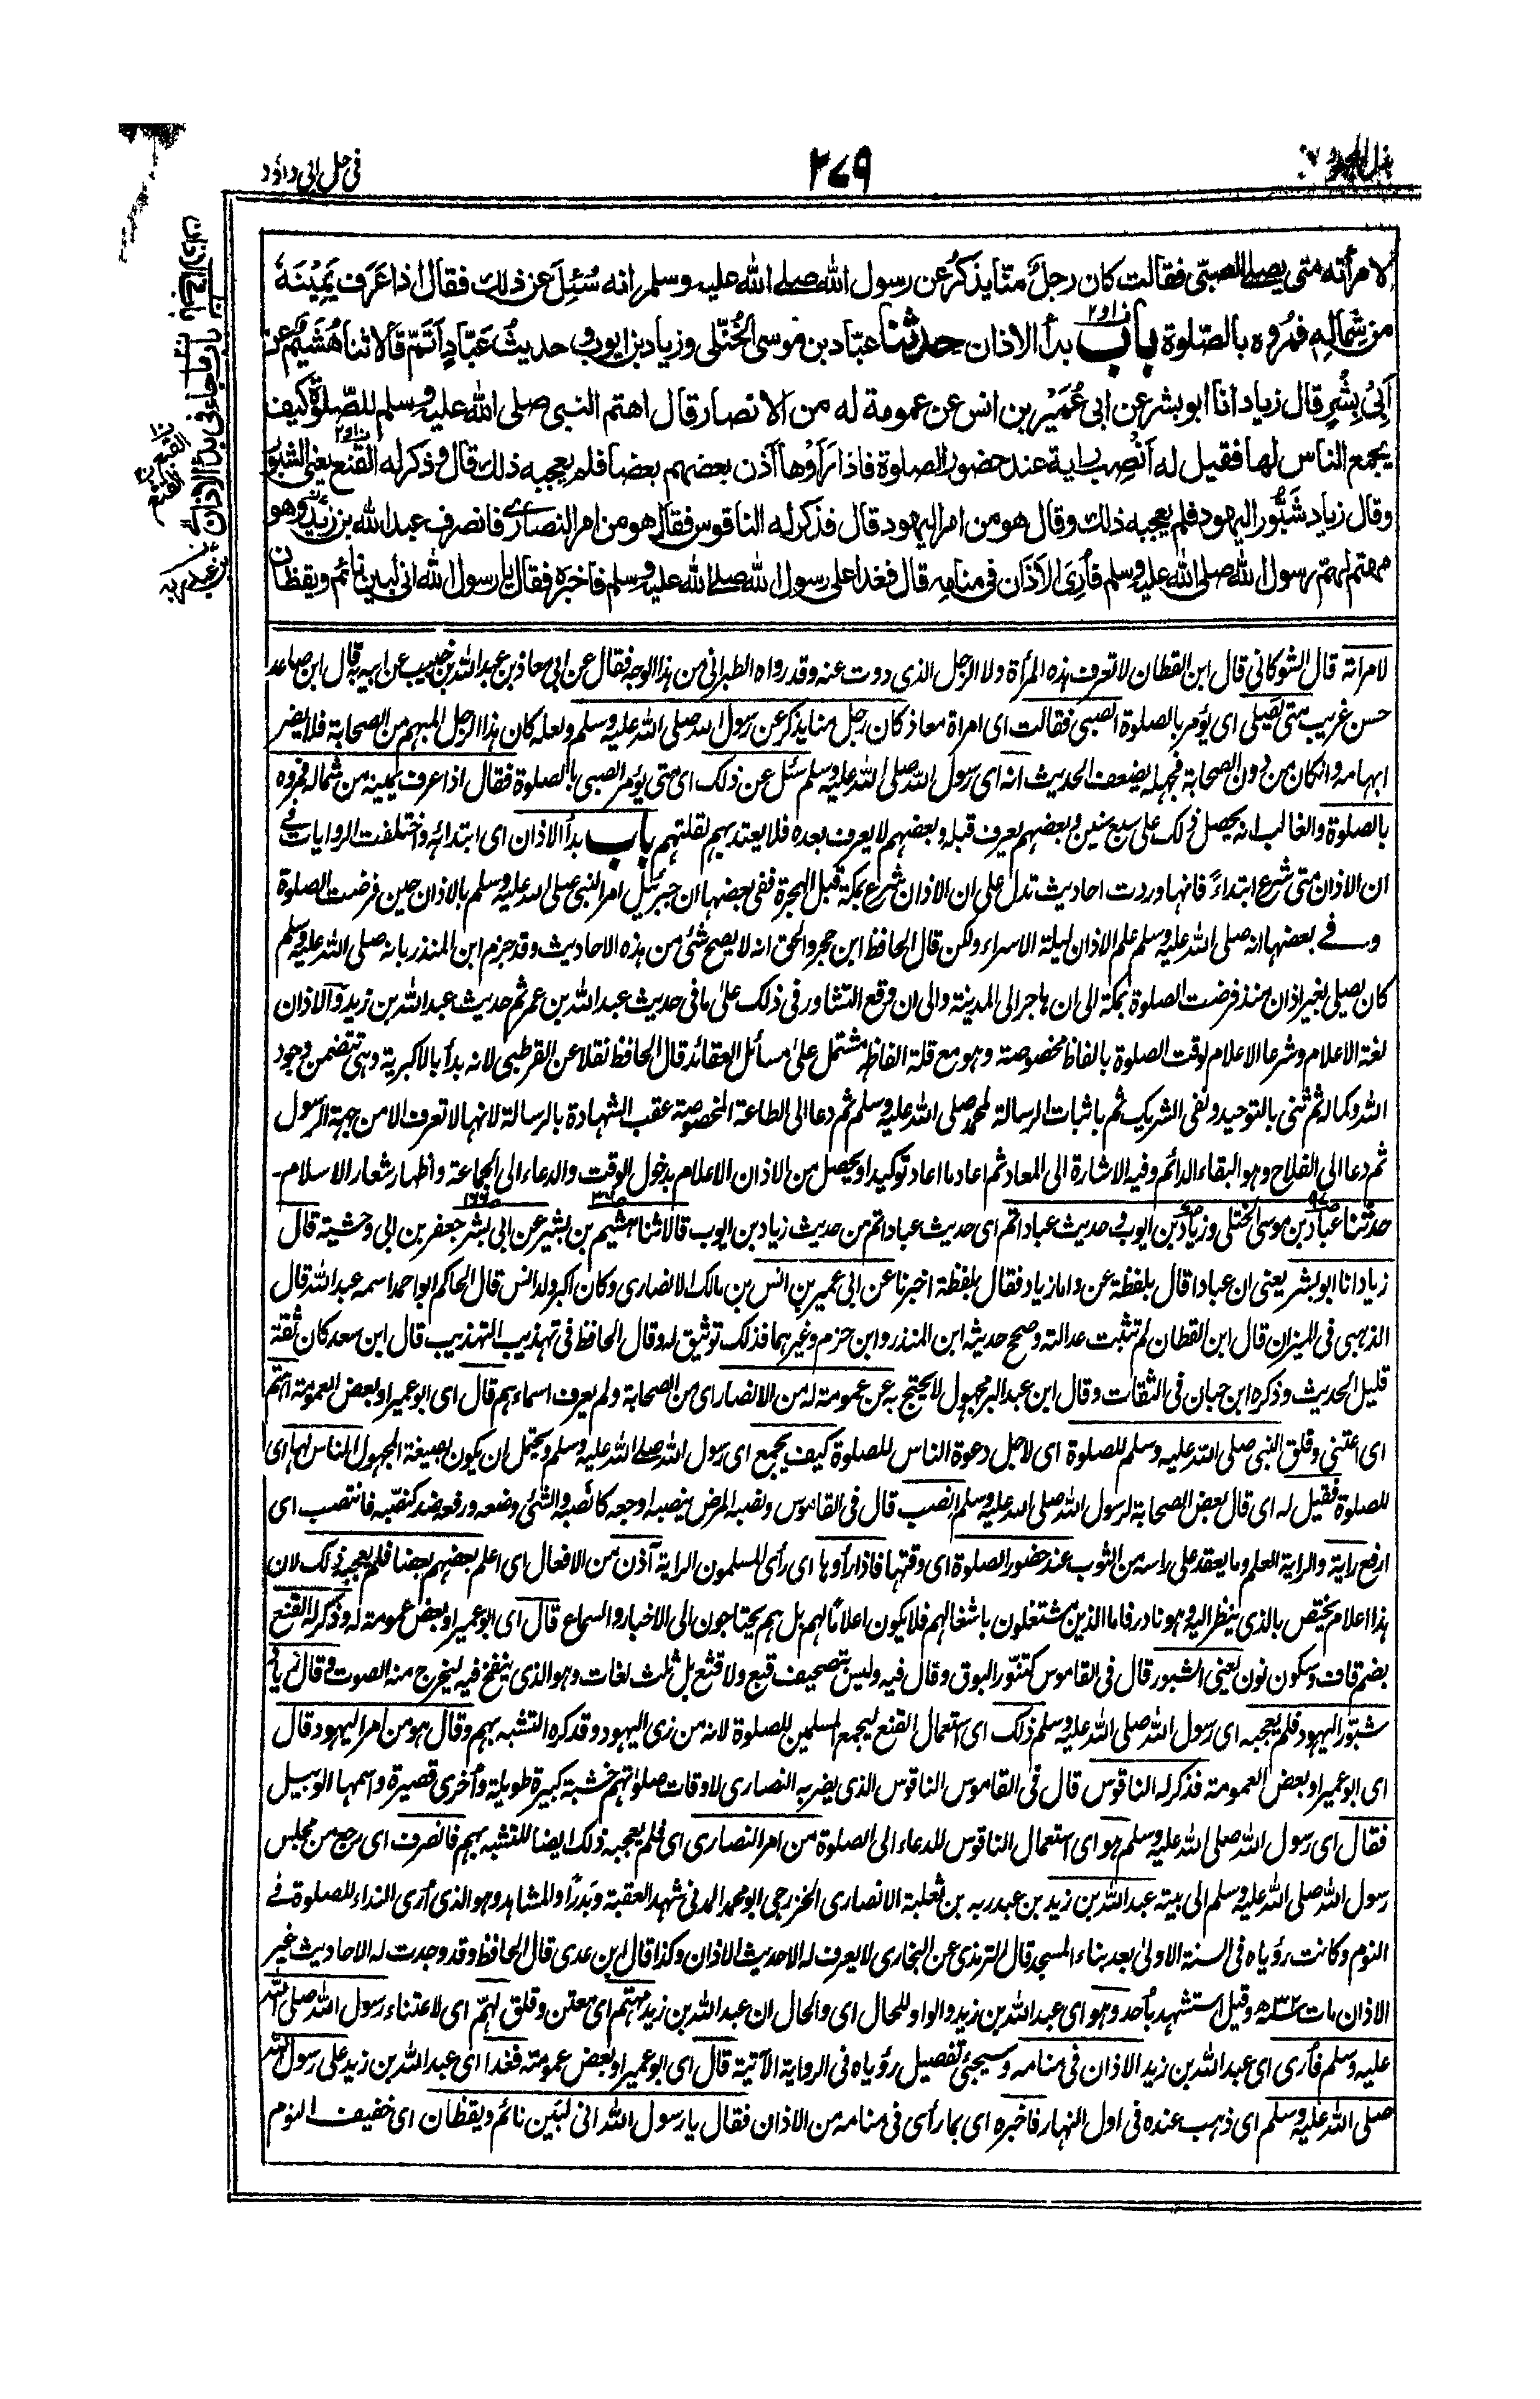 بذل المجهود
٢٧٩
في حل ابي داؤد
لامرأته متى يصلي الصبي فقالت كان رجل منا يذكر عن رسول الله صلى الله عليه وسلم انه سُئِلَ عن ذلك فقال اذا عَرَف يَمِيْنَهٗ
من شماله فمروه بالصلوة باب بدأ الاذان حدثنا عبّاد بن موسى الخُتّلي وزياد بن ايوب وحديث عَبّادٍ اَتَمّ قالا ثنا هُشَيْم عن
اَبِيْ بِشْرٍ قال زياد انا ابو بشر عن ابي عُمَيْر بن انس عن عمومة له من الانصار قال اهتم النبي صلى الله عليه وسلم للصّلوٰة كيف
يجمع الناس لها فقيل له اَنْصِب راية عند حضور الصلوة فاذا رَأَوْها آذن بعضهم بعضا فلم يعجبه ذلك قال وذكر له القنع يعني الشبّور
وقال زياد شَبُّور اليهود فلم يعجبه ذلك وقال هو من امر اليهود قال فذكر له الناقوس فقال هو من امر النصارى فانصرف عبد الله بن زيد وهو
مهتم لهمّ رسول الله صلى الله عليه وسلم فأُرِيَ الاَذَان في منامه قال فغدا على رسول الله صلى الله عليه وسلم فاخبره فقال يا رسول الله اني لبين نائم ويقظان
لامرأته قال الشوكاني قال ابن القطان لا تعرف هذه المرأة ولا الرجل الذي روت عنه وقد رواه الطبراني من هذا الوجه فقال عن ابي معاذ بن عبد الله بن خبيب عن ابيه به قال ابن صاعد
حسن غريب متى يصلي اى يؤمر بالصلوة الصبي فقالت اى امرأة معاذ كان رجل منا يذكر عن رسول الله صلى الله عليه وسلم ولعله كان هذا الرجل المبهم من الصحابة فلا يضر
ابهامه وان كان من دون الصحابة فجهله يضعف الحديث انه اى رسول الله صلى الله عليه وسلم سئل عن ذلك اى متى يؤمر الصبي بالصلوة فقال اذا عرف يمينه من شماله فمروه
بالصلوة والغالب انه يحصل ذلك على سبع سنين وبعضهم يعرف قبله وبعضهم لا يعرف بعده فلا يعتد بهم لقلتهم باب بدأ الاذان اى ابتدائه واختلفت الروايات في
ان الاذان متى شرع ابتداءً فانها وردت احاديث تدل على ان الاذان شرع بمكة قبل الهجرة ففي بعضها ان جبرئيل امر النبي صلى الله عليه وسلم بالاذان حين فرضت الصلوة
وفي بعضها انه صلى الله عليه وسلم علم الاذان ليلة الاسراء ولكن قال الحافظ ابن حجر والحق انه لا يصح شئ من هذه الاحاديث وقد جزم ابن المنذر بانه صلى الله عليه وسلم
كان يصلي بغير اذان منذ فرضت الصلوة بمكة الى ان هاجر الى المدينة والى ان وقع التشاور في ذلك على ما في حديث عبد الله بن عمر ثم حديث عبد الله بن زيد والاذان
لغة الاعلام وشرعا الاعلام لوقت الصلوة بالفاظ مخصوصة وهو مع قلة الفاظه مشتمل على مسائل العقائد قال الحافظ نقلا عن القرطبي لانه بدأ بالاكبرية وهي تتضمن وجود
الله وكماله ثم ثنى بالتوحيد ونفي الشريك ثم باثبات الرسالة لمحمد صلى الله عليه وسلم ثم دعا الى الطاعة المخصوصة عقب الشهادة بالرسالة لانها لا تعرف الا من جهة الرسول
ثم دعا الى الفلاح وهو البقاء الدائم وفيه الاشارة الى المعاد ثم اعاد ما اعاد توكيدا ويحصل من الاذان الاعلام بدخول الوقت والدعاء الى الجماعة واظهار شعار الاسلام-
حدثنا عباد بن موسى الختلي وزياد بن ايوب وحديث عباد اتم اى حديث عباد اتم من حديث زياد بن ايوب قالا ثنا هشيم بن بشير عن ابي بشر جعفر بن ابي وحشية قال
زياد انا ابو بشر يعني ان عبادا قال بلفظة عن واما زياد فقال بلفظة اخبرنا عن ابي عمير بن انس بن مالك الانصاري وكان اكبر ولد انس قال الحاكم ابو احمد اسمه عبد الله قال
الذهبي في الميزان قال ابن القطان لم تثبت عدالته وصحح حديثه ابن المنذر وابن حزم وغيرهما فذلك توثيق له وقال الحافظ في تهذيب التهذيب قال ابن سعد كان ثقة
قليل الحديث وذكره ابن حبان في الثقات وقال ابن عبد البر مجهول لا يحتج به عن عمومة له من الانصار اى من الصحابة ولم يعرف اسماءهم قال اى ابو عمير او بعض العمومة اهتم
اى اعتنى وقلق النبي صلى الله عليه وسلم للصلوة اى لاجل دعوة الناس للصلوة كيف يجمع اى رسول الله صلى الله عليه وسلم ويحتمل ان يكون بصيغة المجهول الناس لها اى
للصلوة فقيل له اى قال بعض الصحابة لرسول الله صلى الله عليه وسلم انصب قال في القاموس ونصبه المرض ينصبه اوجعه كانصبه والشئ وضعه ورفعه ضد كنصّبه فانتصب اى
ارفع راية والراية العلم وما يعقد على راسه من الثوب عند حضور الصلوة اى وقتها فاذا رأوها اى رأى المسلمون الراية آذن من الافعال اى اعلم بعضهم بعضا فلم يعجبه ذلك لان
هذا اعلام يختص بالذي ينظر اليه وهو نادر فاما الذين مشتغلون باشغالهم فلا يكون اعلاما لهم بل هم يحتاجون الى الاخبار والسماع قال اى ابو عمير او بعض عمومة له وذكر له القنع
بضم قاف وسكون نون يعني الشبور قال في القاموس كتنّور البوق وقال فيه وليس بتصحيف قبع ولا قثع بل ثلث لغات وهو الذي ينفخ فيه ليخرج منه الصوت وقال زياد
شبّور اليهود فلم يعجبه اى رسول الله صلى الله عليه وسلم ذلك اى استعمال القنع ليجمع المسلمين للصلوة لانه من زي اليهود وقد كره التشبه بهم وقال هو من امر اليهود قال
اى ابو عمير او بعض العمومة فذكر له الناقوس قال في القاموس الناقوس الذي يضربه النصارى لاوقات صلوٰتهم خشبة كبيرة طويلة وأخرى قصيرة واسمها الوبيل
فقال اى رسول الله صلى الله عليه وسلم هو اى استعمال الناقوس للدعاء الى الصلوة من امر النصارى اى فلم يعجبه ذلك ايضا للتشبه بهم فانصرف اى رجع من مجلس
رسول الله صلى الله عليه وسلم الى بيته عبد الله بن زيد بن عبد ربه بن ثعلبة الانصاري الخزرجي ابو محمد المدني شهد العقبة وبدرًا والمشاهد وهو الذي أرى النداء للصلوة في
النوم وكانت رؤياه في السنة الاولى بعد بناء المسجد قال الترمذي عن البخاري لا يعرف له الا حديث الاذان وكذا قال ابن عدي قال الحافظ وقد وجدت له الاحاديث غير
الاذان مات ٣٢ھ وقيل استشهد بأحد وهو اى عبد الله بن زيد والواو للحال اى والحال ان عبد الله بن زيد مهتم اى معتن وقلق لهمّ اى لاعتناء رسول الله صلى الله
عليه وسلم فأرى اى عبد الله بن زيد الاذان في منامه وسيجئ تفصيل رؤياه في الرواية الآتية قال اى ابو عمير او بعض عمومته فغدا اى عبد الله بن زيد على رسول الله
صلى الله عليه وسلم اى ذهب عنده في اول النهار فاخبره اى بما رأى في منامه من الاذان فقال يا رسول الله اني لبين نائم ويقظان اى خفيف النوم
باب ما جاء في بدأ الاذان
بن عبد ربه